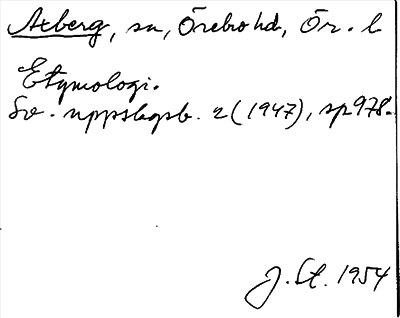 Axberg, sn, Örebro hd, Ör. l
Etymologi.
Sv. uppslagsb. 2 (1947), sp 978.
J. St. 1954